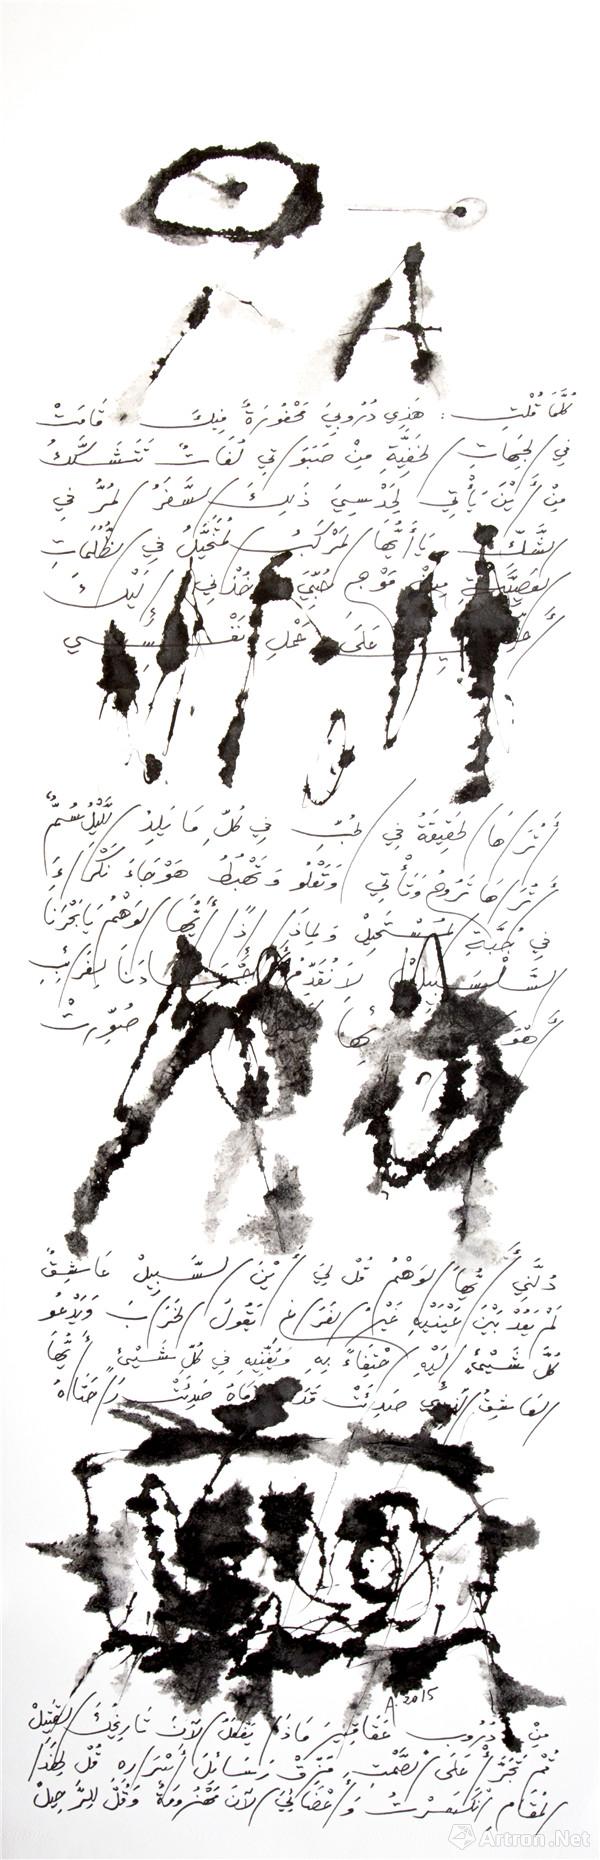 كُلَّمَا قُلْتِ : هَذِي دُرُوبِيَ مَحْفُورَةٌ فِيكَ قَامَتْ
فِي الجِهَاتِ الخَفِيَّةِ مِنْ صَبَوَاتِي لُغَاتٌ تَتَشَكَّكُ
مِنْ أَيْنَ يَأْتِي لِحَدْسِيَ ذَلِكَ السَّفَرُ المُرُّ فِي
الشَّكِّ يَا أَيُّهَا المَرْكَبُ المُتَخَيَّلُ فِي الظُّلُمَاتِ
العَصِيَّةِ مِنْ مَوْجِ حُبِّيَ خُذْنِي إِلَيْكَ
عَلَى حَمْلِ نَفْسِي
أَتُرَاهَا الحَقِيقَةُ فِي الحُبِّ فِي كُلِّ مَا يَلِدُ اللَّيْلُ سُمٌّ
أَتُرَاهَا تَرُوحُ وَتَأْتِي وَتَعْلُو وَتَهْبُطُ هَوْجَاءَ نَكْرَاءَ
فِي جُبَّةِ المُسْتَحِيلِ وَلِمَاذَا إِذًا أَيُّهَا الوَهْمُ يَا بَحْرَنَا
السَّلْسَبِيلَ لَا نُقَدِّمُ أَجْسَادَنَا لِغَرَائِبِ
أَهْوَائِهَا صُوِّرَتْ
دُلَّنِي أَيُّهَا الوَهْمُ قُلْ لِيَ أَيْنَ السَّبِيلُ عَاشِقٌ
لَمْ يَعُدْ بَيْنَ عَيْنَيْهِ غَيْرُ الفَرَاغِ يَقُولُ الخَرَابَ وَيَدْعُو
كُلَّ شَيْءٍ إِلَيْهِ احْتِفَاءً بِهِ وَيُغَنِّيهِ فِي كُلِّ شَيْءٍ أَيُّهَا
العَاشِقُ الَّذِي صَدِئَتْ قَدَمَاهُ صَدِئَتْ رَاحَتَاهُ
A. 2015
مِنْ دُرُوبِ عَقَاقِيرَ مَاذَا يَفْعَلُ الآنَ تَارِيخُكَ القَتِيلْ
قُمْ تَجَرَّأْ عَلَى الصَّمْتِ مَزِّقْ رَسَائِلَ أَسْرَارِهِ قُلْ لِهَذَا
المَقَامِ انْكَسَرْتُ وَأَعْضَائِيَ الآنَ مَهْزُومَةٌ وَقُلْ لِلرَّحِيلْ
Artron.Net